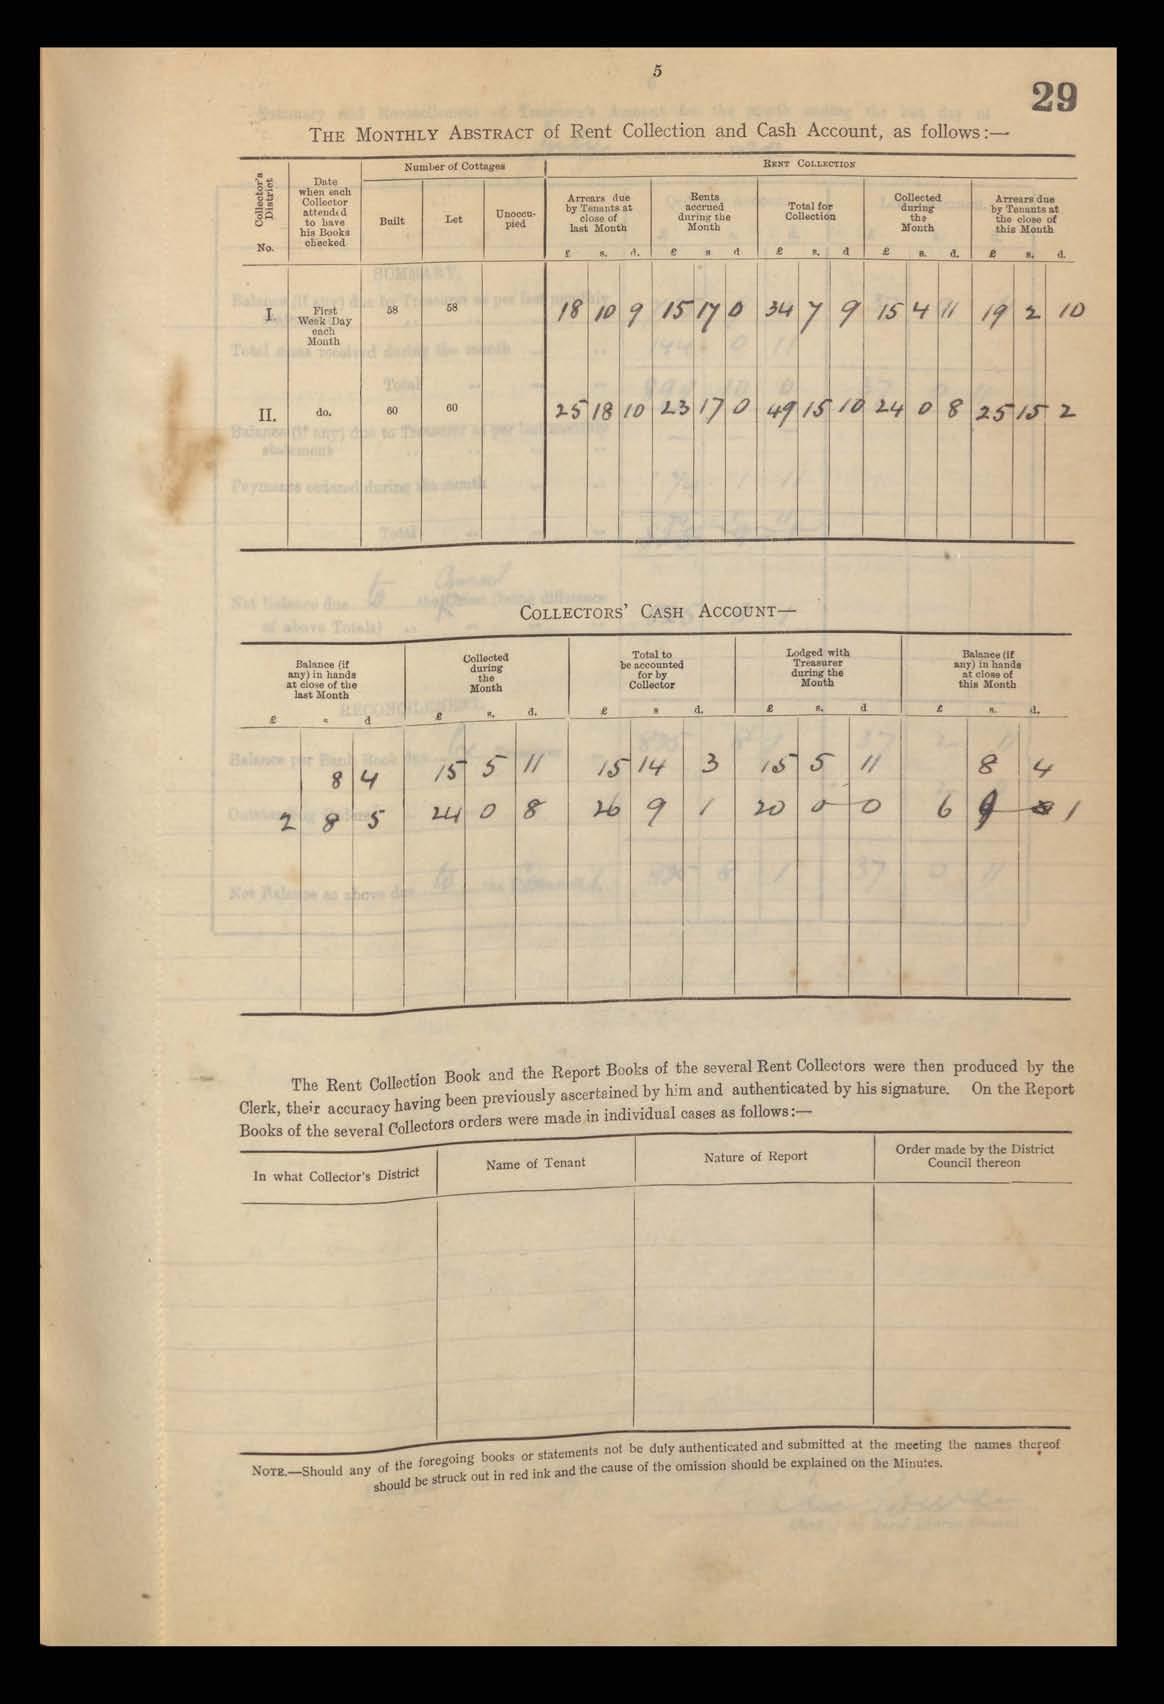 5
29
THE MONTHLY ABSTRACT of Rent Collection and Cash Account, as follows:—
Collector's District No.
Date when each Collector attended to have his Books checked
Number of Cottages
Built
Let
Unoccupied
RENT COLLECTION
Arrears due by Tenants at close of last Month
Rents accrued during the Month
Total for Collection
Collected during the Month
Arrears due by Tenants at the close of this Month
£ s. d. £ s d £ s. d £ s. d. £ s. d.
I. First Week Day each Month 58 58 18 10 9 15 17 0 34 7 9 15 4 11 19 2 10
II. do. 60 60 25 18 10 23 17 0 49 15 10 24 0 8 25 15 2
COLLECTORS' CASH ACCOUNT—
Balance (if any) in hands at close of the last Month
Collected during the Month
Total to be accounted for by Collector
Lodged with Treasurer during the Month
Balance (if any) in hands at close of this Month
£ s d £ s. d. £ s d. £ s. d £ s. d.
8 4 15 5 11 15 14 3 15 5 11 8 4
2 8 5 24 0 8 26 9 1 20 0 0 6 9 1
The Rent Collection Book and the Report Books of the several Rent Collectors were then produced by the
Clerk, their accuracy having been previously ascertained by him and authenticated by his signature. On the Report
Books of the several Collectors orders were made in individual cases as follows:—
In what Collector's District
Name of Tenant
Nature of Report
Order made by the District Council thereon
NOTE.—Should any of the foregoing books or statements not be duly authenticated and submitted at the meeting the names thereof
should be struck out in red ink and the cause of the omission should be explained on the Minutes.